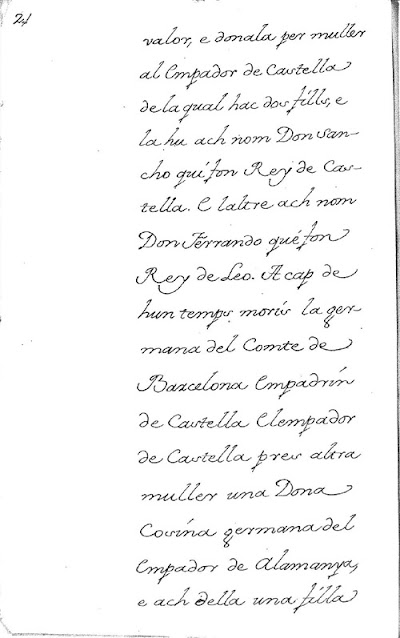 24
valor, e donala per muller
al Empador de Castella
de la qual hac dos fills, e
la hu ach nom Don San-
cho qui fon Rey de Cas-
tella. E laltre ach nom
Don Ferrando qué fon
Rey de Leo. A cap de
hun temps morís la ger-
mana del Comte de
Barcelona Empadrín
de Castella Elempador
de Castella pres altra
muller una Dona
Cosína germana del
Empador de Alamanya,
e ach della una filla